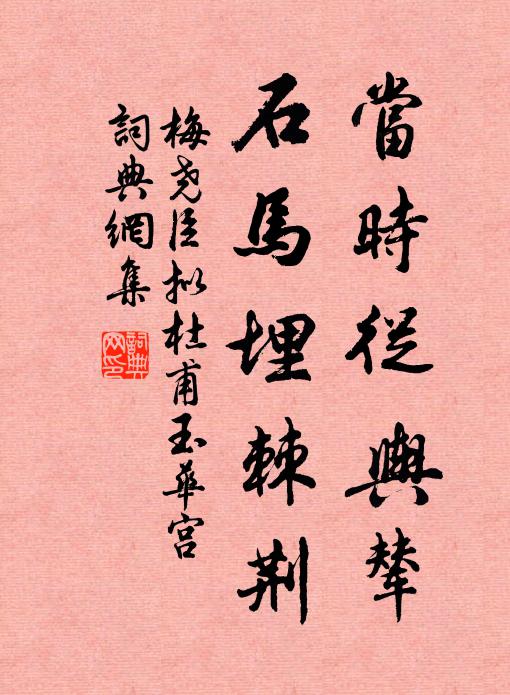 當時從輿輦
石馬埋棘荆
梅堯臣拟杜甫玉華宫
詞典網集
詞典網印